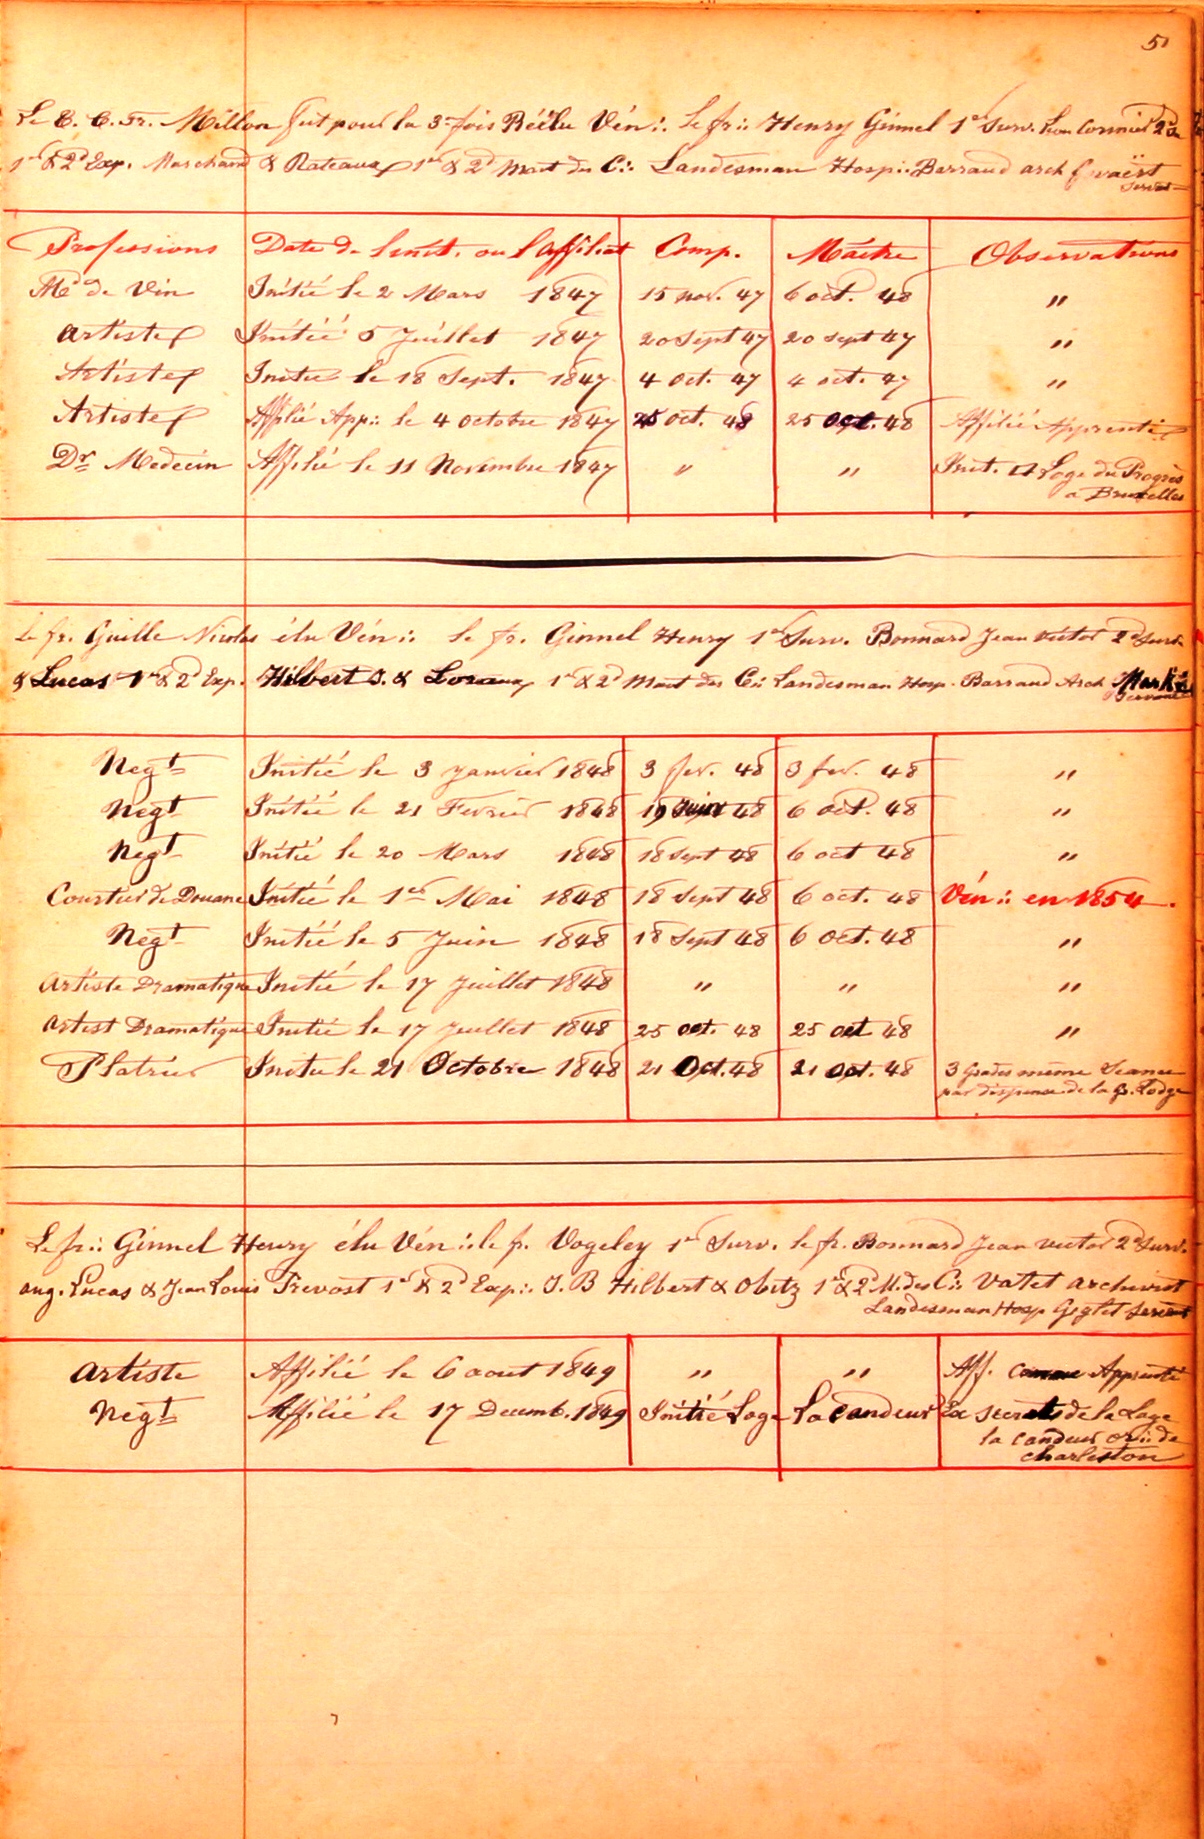 5
Le T. C. Fr. Millon fut pour la 3e fois Réélu Vén∴ Le fr∴ Henry Ginnel 1er Surv. Léon Cormier 2d Su
1er & 2d Exp. Marchand & Rateaux 1er & 2d Mait des C∴ Landesman Hosp∴ Barraud arch Gevaërt
Servant
Professions Date de l'init. ou l'affiliat Comp. Maitre Observations
Md de Vin Initié le 2 Mars 1847 15 nov. 47 6 oct. 48 "
Artiste Initié 5 Juillet 1847 20 Sept 47 20 sept 47 "
Artiste Initié le 18 Sept. 1847 4 oct. 47 4 oct. 47 "
Artiste Affilié App∴ le 4 octobre 1847 25 oct. 48 25 oct. 48 Affilié Apprenti
Dr Medecin Affilié le 11 Novembre 1847 " " Init. Loge du Progrès
a Bruxelles
Le fr. Guille Nicolas élu Vén∴ le fr. Ginnel Henry 1er Surv. Bonnard Jean victor 2d Surv.
& Lucas 1er & 2d Exp. Hilbert J. & Loraux 1er & 2d Mait des Cé∴ Landesman Hosp. Barraud Arch
Servant
Negt Initié le 3 Janvier 1848 3 fev. 48 3 fev. 48 "
Negt Initié le 21 Fevrier 1848 19 Juin 48 6 oct. 48 "
Negt Initié le 20 Mars 1848 18 sept 48 6 oct 48 "
Courtier de Douane Initié le 1er Mai 1848 18 Sept 48 6 oct. 48 Vén∴ en 1854.
Negt Initié le 5 Juin 1848 18 Sept 48 6 oct. 48 "
Artiste Dramatique Initié le 17 Juillet 1848 " " "
Artist Dramatique Initié le 17 Juillet 1848 25 oct. 48 25 oct 48 "
Platrier Initié le 21 Octobre 1848 21 Oct. 48 21 oct. 48 3 Grades meme Seance
par dispense de la G. Lodge
Le fr∴ Ginnel Henry élu Vén∴ le fr. Vogeley 1er Surv. le fr. Bonnard Jean victor 2d Surv.
aug. Lucas & Jean Louis Prevost 1er & 2d Exp∴ J. B Hilbert & Obitz 1er & 2d M. des C∴ Vatet archivist
Landesman Hosp Giglet servant
Artiste Affilié le 6 aout 1849 " " Aff. comme Apprenti
Negt Affilié le 17 Decemb. 1849 Initié Loge La Candeur Ex Secret de la Loge
la candeur Or∴ de
charleston